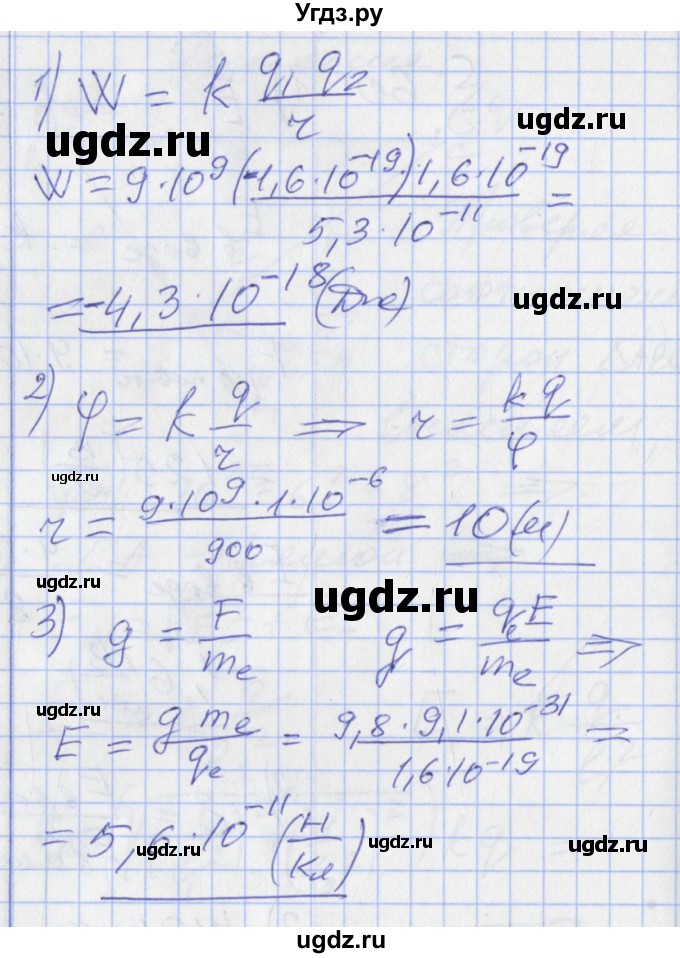 Угдз.ру
1) W = k q₁ q₂ / r
ugdz.ru
W = 9·10⁹ (-1,6·10⁻¹⁹)·1,6·10⁻¹⁹ / 5,3·10⁻¹¹ =
ugdz.ru
= -4,3·10⁻¹⁸ (Дж)
2) φ = k q / r ⇒ r = k q / φ
ugdz.ru
r = 9·10⁹·1·10⁻⁶ / 900 = 10 (м)
ugdz.ru
ugdz.ru
3) g = F / mₑ g = qₑE / mₑ ⇒
ugdz.ru
E = g mₑ / qₑ = 9,8·9,1·10⁻³¹ / 1,6·10⁻¹⁹ =
= 5,6·10⁻¹¹ (Н / Кл)
ugdz.ru
ugdz.ru
ugdz.ru
ugdz.ru